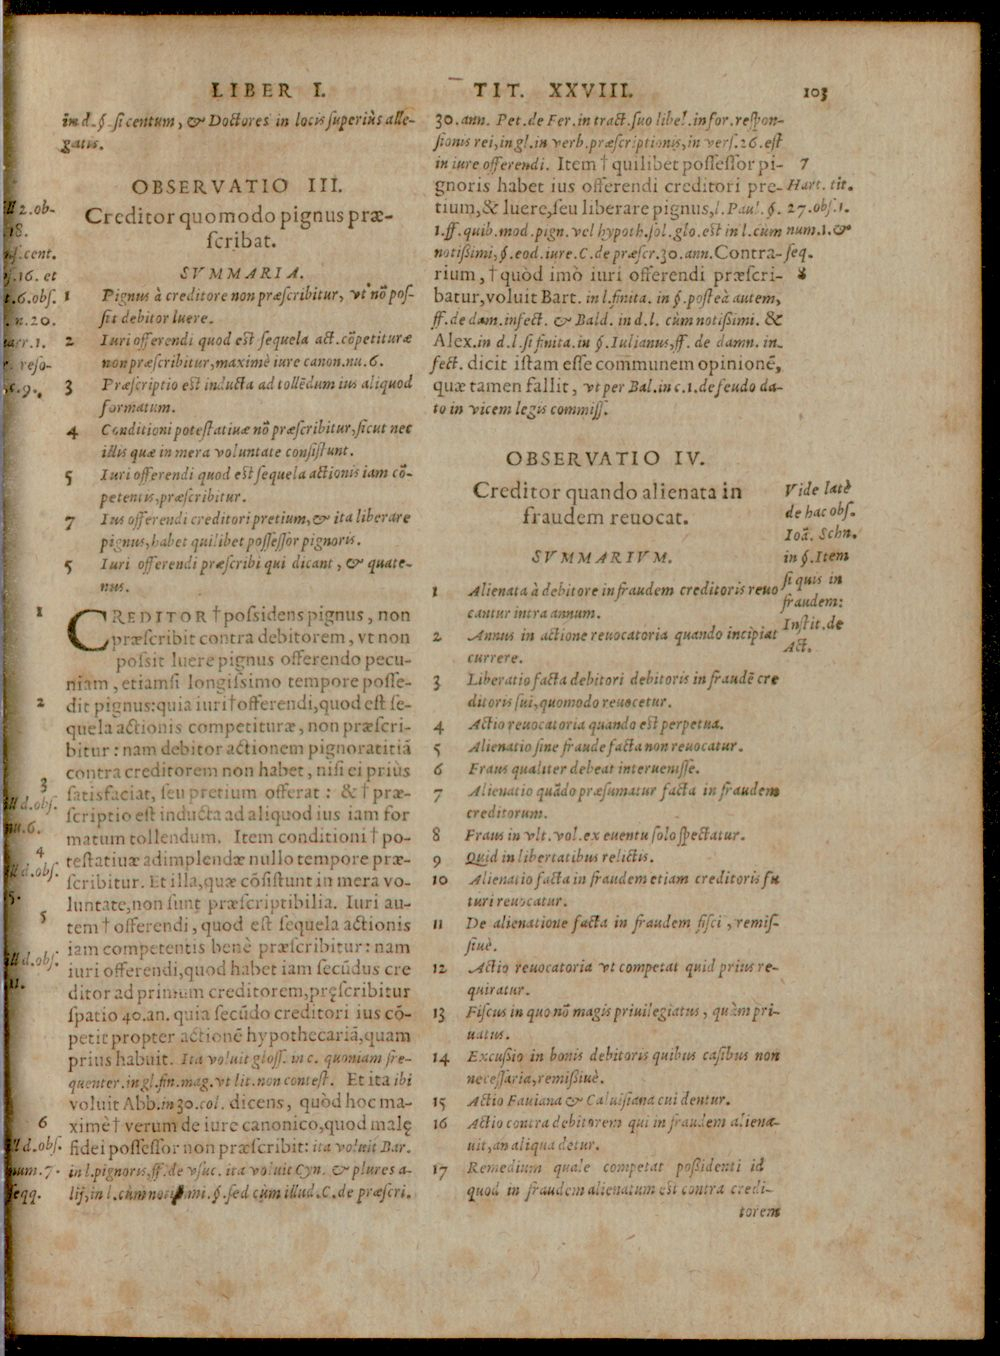 LIBER I. TIT. XXVIII. 103
in d. §. si centum, & Doctores in locis superiùs alle-
gatis.
OBSERVATIO III.
Creditor quomodo pignus præ-
scribat.
SVMMARIA.
1 Pignus à creditore non præscribitur, vt nõ pos-
sit debitor luere.
2 Iuri offerendi quod est sequela act. cõpetituræ
non præscribitur, maximè iure canon. nu. 6.
3 Præscriptio est inducta ad tollẽdum ius aliquod
formatum.
4 Conditioni potestatiuæ nõ præscribitur, sicut nec
illis quæ in mera voluntate consistunt.
5 Iuri offerendi quod est sequela actionis iam cõ-
petentis, præscribitur.
7 Ius offerendi creditori pretium, & ita liberare
pignus, habet quilibet possessor pignoris.
5 Iuri offerendi præscribi qui dicant, & quate-
nus.
1 CREDITOR † possidens pignus, non
præscribit contra debitorem, vt non
possit luere pignus offerendo pecu-
niam, etiamsi longissimo tempore posse-
2 dit pignus: quia iuri † offerendi, quod est se-
quela actionis competituræ, non præscri-
bitur: nam debitor actionem pignoratitiã
contra creditorem non habet, nisi ei priùs
3 satisfaciat, seu pretium offerat: & † præ-
scriptio est inducta ad aliquod ius iam for
matum tollendum. Item conditioni † po-
4 testatiuæ adimplendæ nullo tempore præ-
scribitur. Et illa, quæ cõsistunt in mera vo-
luntate, non sunt præscriptibilia. Iuri au-
5 tem † offerendi, quod est sequela actionis
iam competentis benè præscribitur: nam
iuri offerendi, quod habet iam secũdus cre
ditor ad primum creditorem, pręscribitur
spatio 40. an. quia secũdo creditori ius cõ-
petit propter actionẽ hypothecariã, quam
prius habuit. Ita voluit gloss. in c. quoniam fre-
quenter. in gl. fin. mag. vt lit. non contest. Et ita ibi
voluit Abb. in 30. col. dicens, quòd hoc ma-
6 ximè † verum de iure canonico, quod malę
fidei possessor non præscribit: ita voluit Bar.
in l. pignoris, ff. de vsuc. ita voluit Cyn. & plures a-
lij, in l. cùm notissimi. §. sed cùm illud. C. de præscri.
ill 2. ob-
18.
cent.
16. et
6. obs.
n. 20.
1.
reso-
9.
ill d. obs.
nu. 6.
ill d. obs.
5.
ill d. obs.
11.
ill d. obs.
num. 7.
seqq.
30. ann. Pet. de Fer. in tract. suo libel. in for. respon-
sionis rei, in gl. in verb. præscriptionis, in vers. 26. est
in iure offerendi. Item † quilibet possessor pi- 7
gnoris habet ius offerendi creditori pre- Hart. tit.
tium, & luere, seu liberare pignus, l. Paul. §. 27. obs. 1.
1. ff. quib. mod. pign. vel hypoth. sol. glo. est in l. cùm num. 1. &
notissimi, §. eod. iure. C. de præscr. 30. ann. Contra- seq.
rium, † quòd imò iuri offerendi præscri- 8
batur, voluit Bart. in l. finita. in §. posteà autem,
ff. de dam. infect. & Bald. in d. l. cùm notissimi. &
Alex. in d. l. si finita. in §. Iulianus, ff. de damn. in-
fect. dicit istam esse communem opinionẽ,
quæ tamen fallit, vt per Bal. in c. 1. de feudo da-
to in vicem legis commiss.
OBSERVATIO IV.
Creditor quando alienata in
fraudem reuocat.
Vide latè
de hac obs.
Ioã. Schn.
in §. Item
si quis in
fraudem:
Instit. de
Act.
SVMMARIVM.
1 Alienata à debitore in fraudem creditoris reuo
cantur intra annum.
2 Annus in actione reuocatoria quando incipiat
currere.
3 Liberatio facta debitori debitoris in fraudẽ cre
ditoris sui, quomodo reuocetur.
4 Actio reuocatoria quando est perpetua.
5 Alienatio sine fraude facta non reuocatur.
6 Fraus qualiter debeat interuenisse.
7 Alienatio quãdo præsumatur facta in fraudem
creditorum.
8 Fraus in vlt. vol. ex euentu solo spectatur.
9 Quid in libertatibus relictis.
10 Alienatio facta in fraudem etiam creditoris fu
turi reuocatur.
11 De alienatione facta in fraudem fisci, remis-
siuè.
12 Actio reuocatoria vt competat quid prius re-
quiratur.
13 Fiscus in quo nõ magis priuilegiatus, quàm pri-
uatus.
14 Excussio in bonis debitoris quibus casibus non
necessaria, remissiuè.
15 Actio Fauiana & Caluisiana cui dentur.
16 Actio contra debitorem qui in fraudem aliena-
uit, an aliqua detur.
17 Remedium quale competat possidenti id
quod in fraudem alienatum est contra credi-
torem